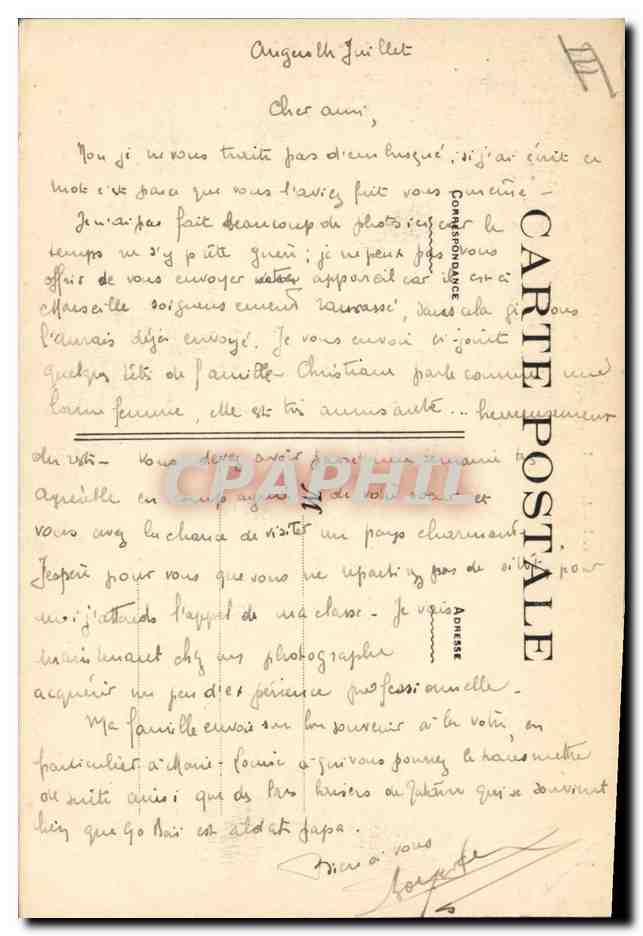 Juillet
Cher ami,
Non je ne vous traite pas d'embusqué, si j'ai écrit ce
mot c'est parce que vous l'aviez fait vous même -
Je n'ai pas fait beaucoup de photos ici car le
temps ne s'y prête guère ; je ne peux pas vous
offrir de vous envoyer appareil car il est à
Marseille soigneusement ramassé, sans cela je vous
l'aurais déjà envoyé. Je vous envoie ci-joint
quelques de famille - Christiane parle comme une
bonne femme, elle est très amusante ... heureusement
du reste - Vous devez avoir une semaine très
agréable en de votre et
vous avez la chance de visiter un pays charmant -
J'espère pour vous que vous ne repartirez pas de sitôt, pour
moi j'attends l'appel de ma classe - Je vais
maintenant chez un photographe
acquérir un peu d'expérience professionnelle -
Ma famille envoie son bon souvenir à la vôtre, en
particulier à Marie-Louise à qui vous pourrez le transmettre
de suite ainsi que des bons baisers de qui se souvient
bien que papa.
à vous
CARTE POSTALE
CORRESPONDANCE
ADRESSE
M
CPAPHIL